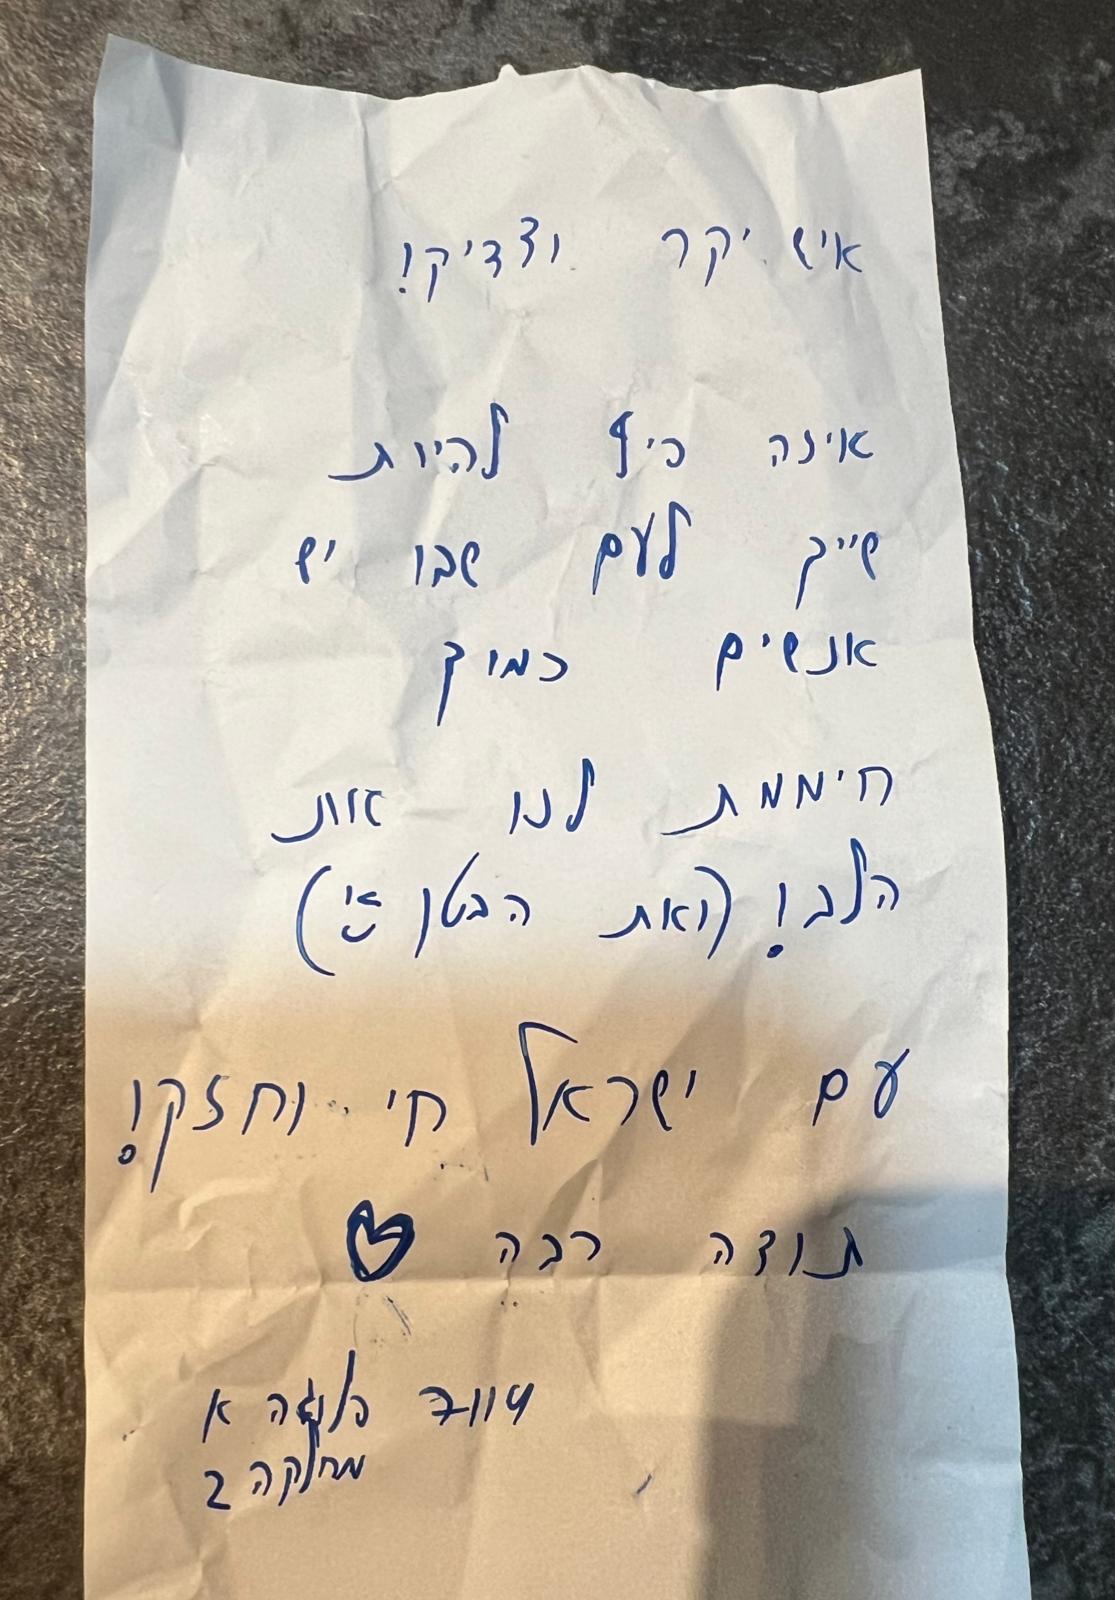 איש יקר וצדיק!
אינה כיף להיות
שייך לעם שבו יש
אנשים כמוך
חיממת לנו את
הלב! (ואת הבטן)
עם ישראל חי וחזק!
תודה רבה ♥
פלוגה א
מחלקה 2